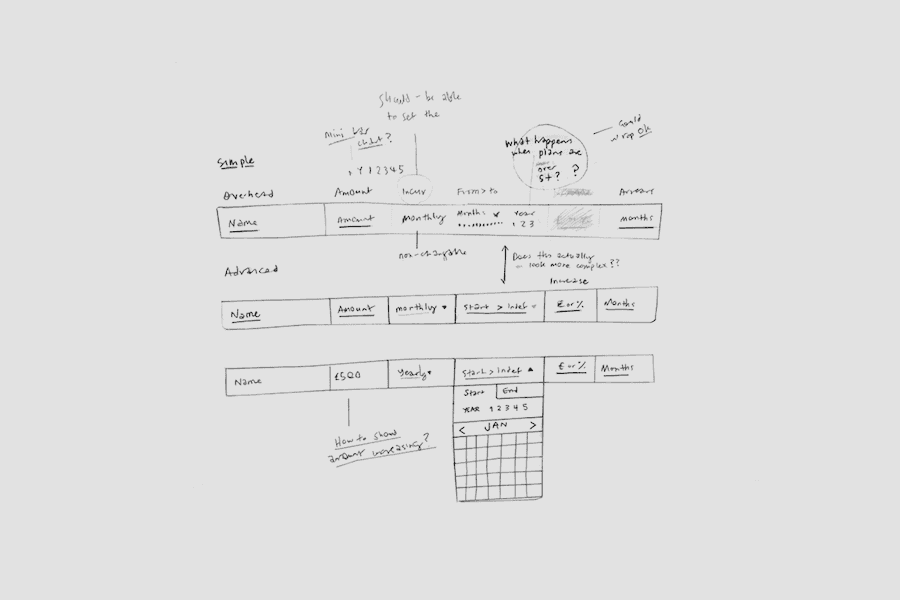 Should be able
to set the
mini bar
chart?
Y 1 2 3 4 5
What happens
when plans are
over
5+? ?
Could
wrap OK
Simple
Overhead Amount Incur From > to
Name Amount monthly Months Year 1 2 3 months
non-changable
Does this actually
look more complex??
Advanced
Increase
Name Amount monthly Start > Indef £ or % Months
Name £500 Yearly Start > Indef £ or % Months
Start End
YEAR 1 2 3 4 5
< JAN >
How to show
amount increasing?